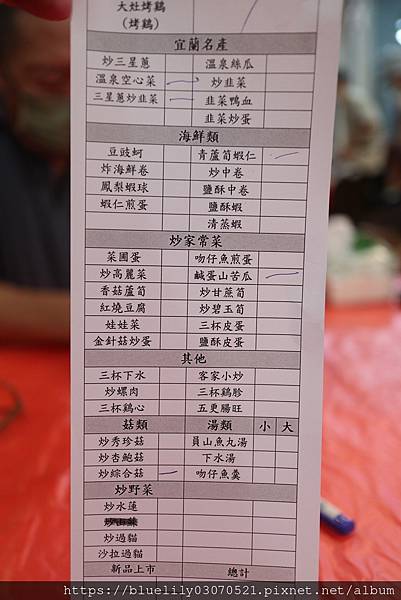 大灶烤鷄
(烤鷄)
宜蘭名產
炒三星蔥 溫泉絲瓜
溫泉空心菜 炒韭菜
三星蔥炒韭菜 韭菜鴨血
韭菜炒蛋
海鮮類
豆豉蚵 青蘆筍蝦仁
炸海鮮卷 炒中卷
鳳梨蝦球 鹽酥中卷
蝦仁煎蛋 鹽酥蝦
清蒸蝦
炒家常菜
菜圃蛋 吻仔魚煎蛋
炒高麗菜 鹹蛋山苦瓜
香菇蘆筍 炒甘蔗筍
紅燒豆腐 炒碧玉筍
娃娃菜 三杯皮蛋
金針菇炒蛋 鹽酥皮蛋
其他
三杯下水 客家小炒
炒螺肉 三杯鷄胗
三杯鷄心 五更腸旺
菇類 湯類 小 大
炒秀珍菇 員山魚丸湯
炒杏鮑菇 下水湯
炒綜合菇 吻仔魚羹
炒野菜
炒水蓮
炒過貓
沙拉過貓
新品上市 總計
https://bluelily03070521.pixnet.net/album